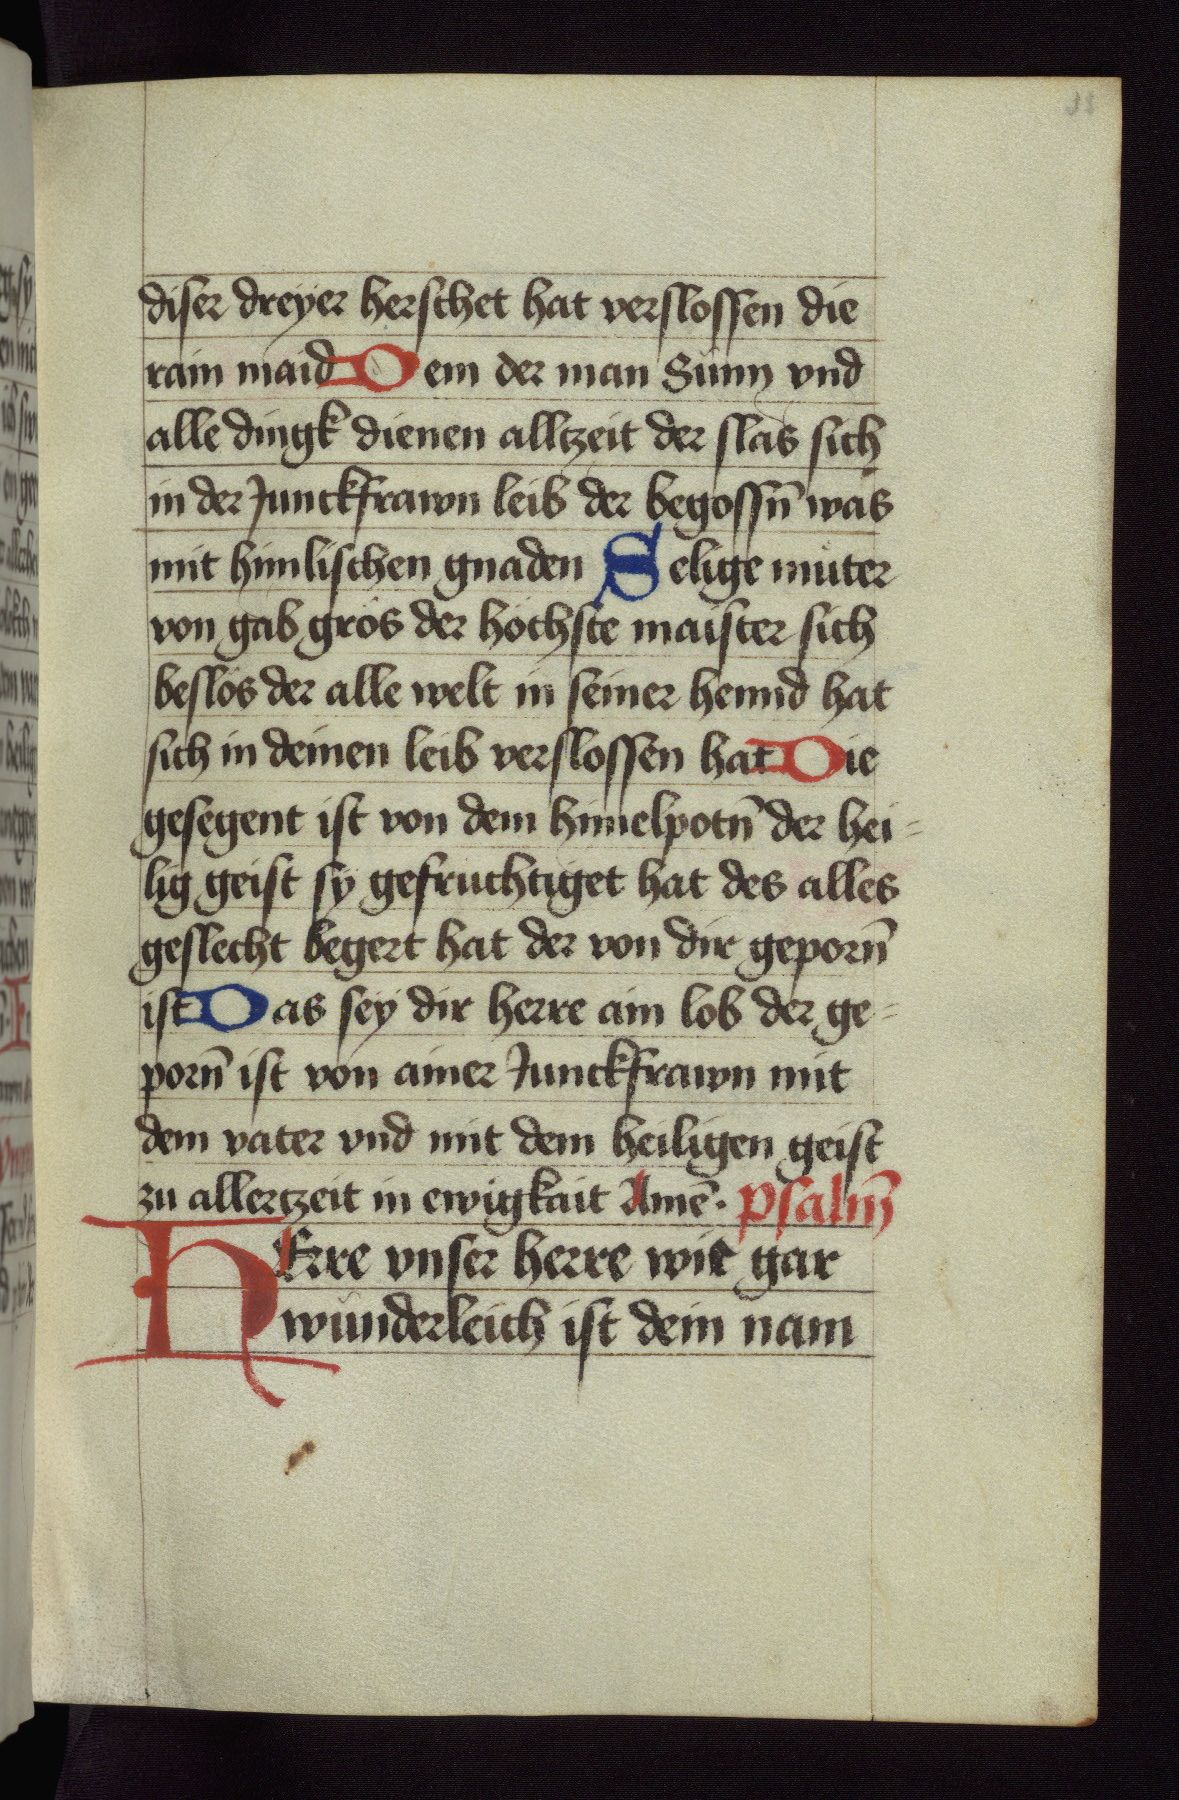 diser dreÿer herschet hat verslossen die
rain maid Dem der man Sunn vnd
alle dingk dienen alltzeit der slås sich
in der Junckfrawn leib der begossn̄ was
mit himlischen gnaden Selige můter
von gab grös der höchste maister sich
beslos der alle welt in seiner hennd hat
sich in deinen leib verslossen hat Die
gesegent ist von dem himelpotn̄ der hei=
lig geist sÿ gefruchtiget hat des alles
geslecht begert hat der von dir geporn̄
ist Das seÿ dir herre ain lob der ge=
porn̄ ist von ainer Junckfrawn mit
dem vater vnd mit dem heiligen geist
zu allertzeit in ewigkait Amē. psalm̄
HErre vnser herre wie gar
wunderleich ist dein nam